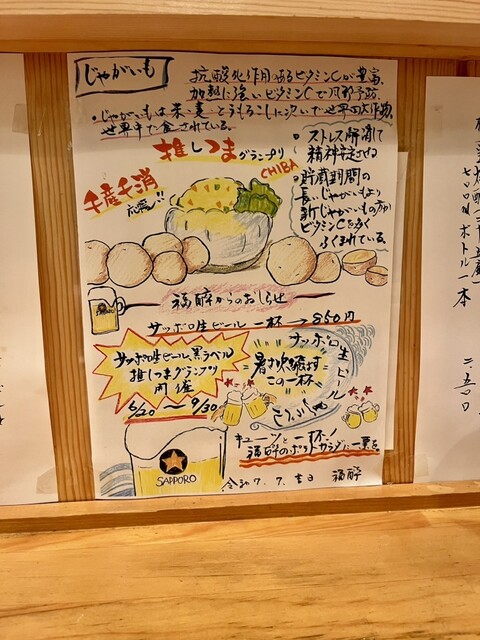 じゃがいも
抗酸化作用あるビタミンCが豊富
加熱に強いビタミンCで風邪予防
・じゃがいもは米・麦・とうもろこしに次いで世界四大作物
世界中で食されている。
推しつまグランプリ
CHIBA
千産千消
応援!!
ストレス解消して
精神安定させる
貯蔵期間の
長いじゃがいもより
新じゃがいもの方が
ビタミンCを多く
ふくまれている。
福酔からのおしらせ
サッポロ生ビール 一杯→850円
サッポロ生ビール黒ラベル
推しつまグランプリ
開催
6/20〜9/30
サッポロ生ビール
暑さ吹き飛ばす
この一杯
キューッと一杯!
福酔のポテトサラダに一票を
SAPPORO
令和7.7.吉日 福酔
一本